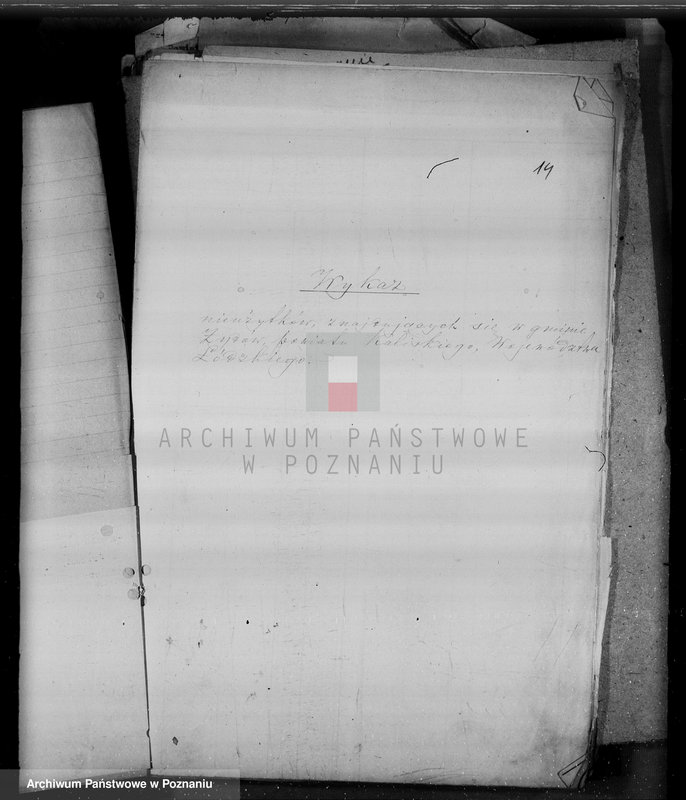 14
Wykaz
nieużytków, znajdujących się w gminie
Żydów, powiatu Kaliskiego, Województwa
Łódzkiego.
ARCHIWUM PAŃSTWOWE
W POZNANIU
Archiwum Państwowe w Poznaniu